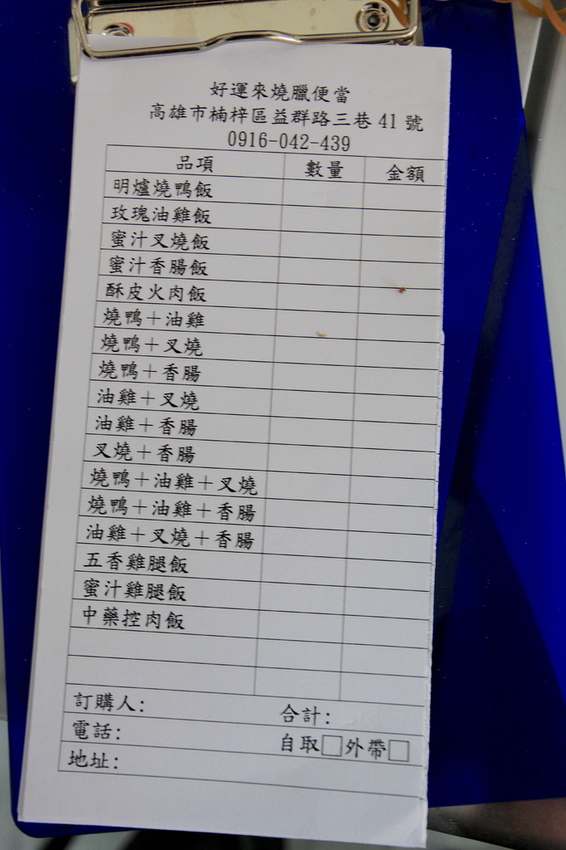 好運來燒臘便當
高雄市楠梓區益群路三巷 41 號
0916-042-439
品項 數量 金額
明爐燒鴨飯
玫瑰油雞飯
蜜汁叉燒飯
蜜汁香腸飯
酥皮火肉飯
燒鴨＋油雞
燒鴨＋叉燒
燒鴨＋香腸
油雞＋叉燒
油雞＋香腸
叉燒＋香腸
燒鴨＋油雞＋叉燒
燒鴨＋油雞＋香腸
油雞＋叉燒＋香腸
五香雞腿飯
蜜汁雞腿飯
中藥控肉飯
訂購人: 合計:
電話: 自取□外帶□
地址: